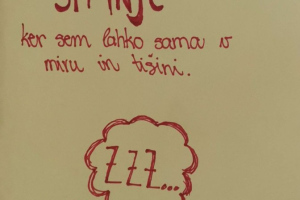 ker sem lahko sama v
miru in tišini.
ZZZ...